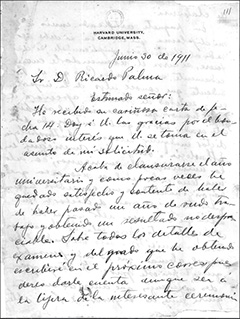 HARVARD UNIVERSITY,
CAMBRIDGE, MASS.
Junio 30 de 1911
Sr. D. Ricardo Palma
Estimado señor:
He recibido su cariñosa carta de fe-
cha 14. Doy a U. las gracias por el bon-
dadoso interés que él se toma en el
asunto de mi solicitud.
Acaba de clausurarse el año
universitario y como pocas veces he
quedado satisfecho y contento de haber
de haber pasado un año de rudo tra-
bajo y obtenido un resultado no despre-
ciable. Sabe todos los detalles de
examenes y del grado que he obtenido
escribiré en el próximo correo
daré cuenta aunque sea á
la tijera de la interesante ceremonia